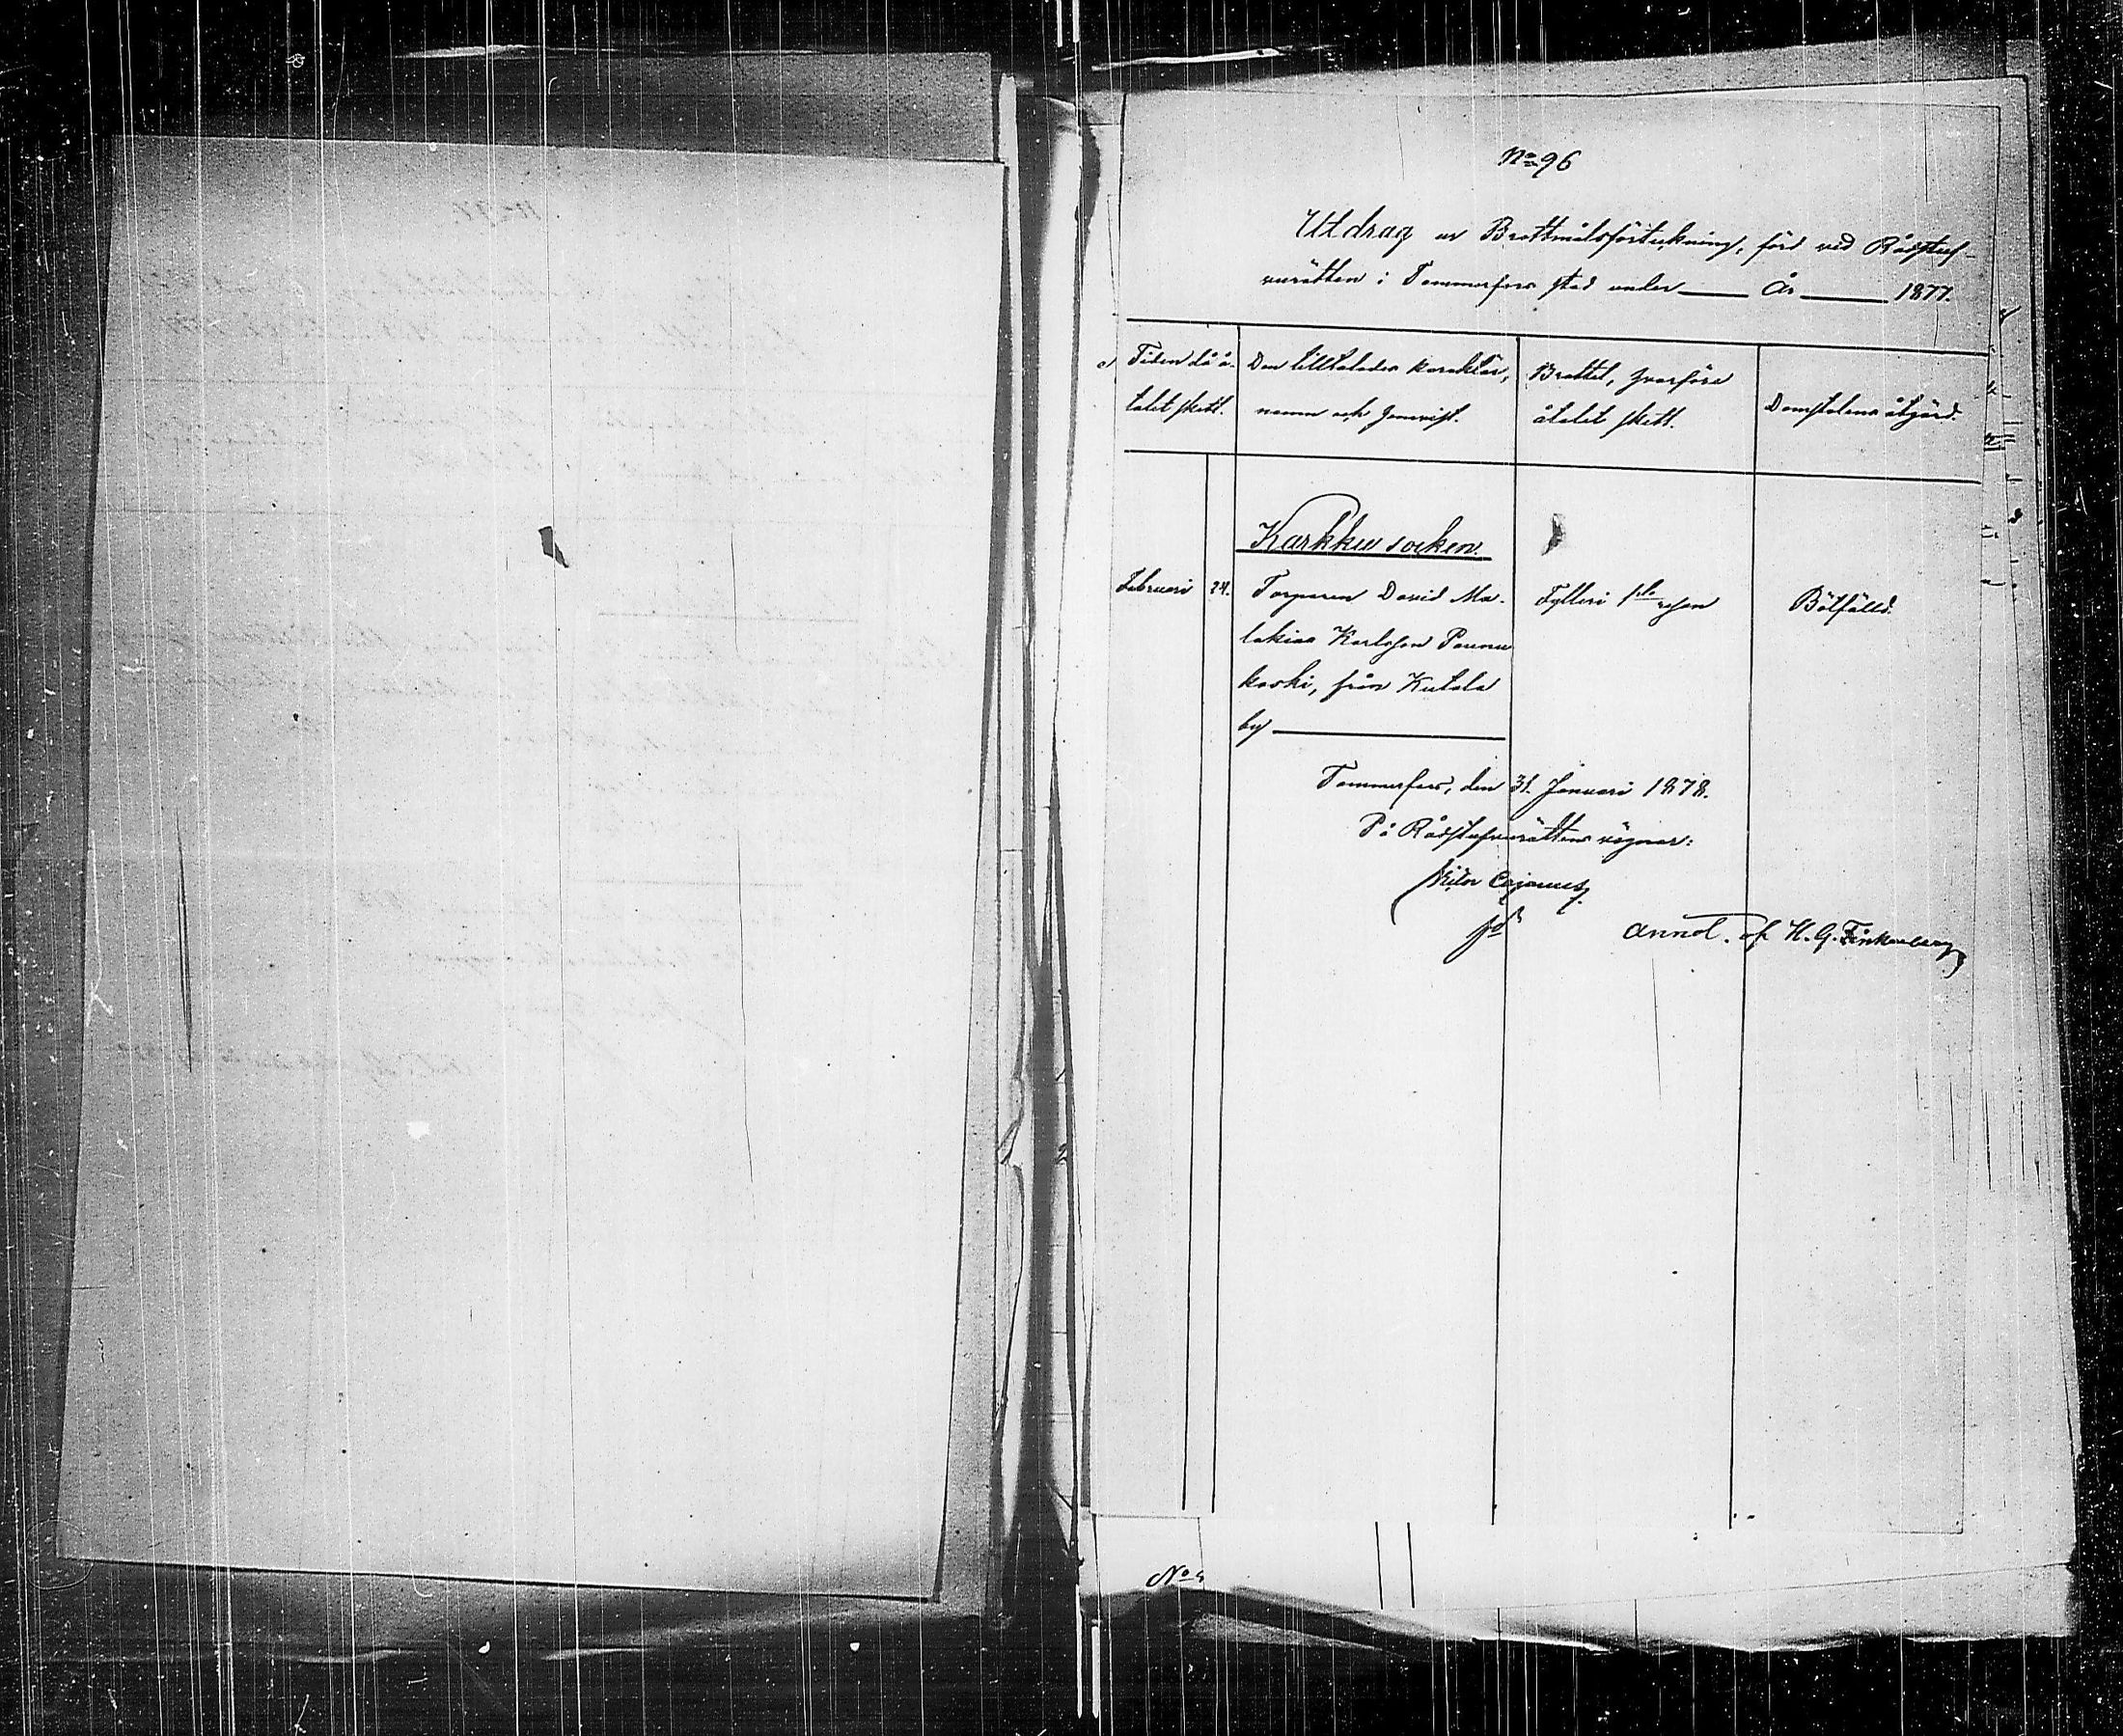 No 96
Utdrag ur Brottmålsförteckning, förd vid Rådstuf-
vurätten i Tammerfors stad under — År — 1877.
Tiden då å-
talet skett.
Den tilltalades karaktär,
namn och hemvist.
Brottet, hvarföre
åtalet skett.
Domstolens åtgärd.
Karkku socken.
Februari 24. Torparen David Ma-
lakias Karlsson Pannu
koski, från Kutala
by
Fylleri 1sta resan
Bötfälld.
Tammerfors, den 31. Januari 1878.
På Rådstufvurättens vägnar:
Viktor Cajanus
Annot. af H. G. Finkenberg
No